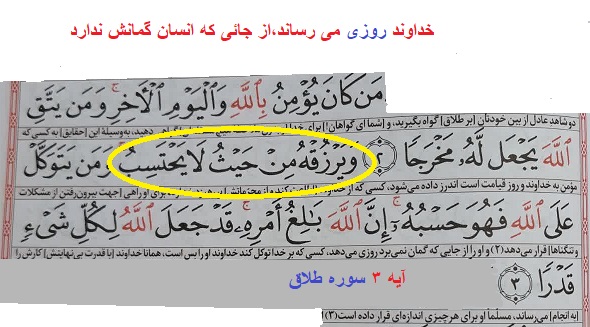 خداوند روزی می رساند،از جائی که انسان گمانش ندارد
مَن كَانَ يُؤْمِنُ بِٱللَّهِ وَٱلْيَوْمِ ٱلْأَخِرِ وَمَن يَتَّقِ
دو شاهد عادل از بین خودتان [بر طلاق] گواه بگیرید، و [شما ای گواهان!] برای خدا به کسی که
ٱللَّهَ يَجْعَل لَّهُۥ مَخْرَجًا ٢ وَيَرْزُقْهُ مِنْ حَيْثُ لَا يَحْتَسِبُ وَمَن يَتَوَكَّلْ
مؤمن به خداوند و روز قیامت است اندرز داده می‌شود، کسی که از خدا برای او راهی [جهت بیرون‌رفتن از مشکلات
عَلَى ٱللَّهِ فَهُوَ حَسْبُهُۥٓ إِنَّ ٱللَّهَ بَٰلِغُ أَمْرِهِۦ قَدْ جَعَلَ ٱللَّهُ لِكُلِّ شَىْءٍ
و تنگناها] قرار می‌دهد(۲) و او را از جایی که گمان نمی‌برد روزی می‌دهد، کسی که بر خدا توکل کند خداوند او را بس است، همانا خداوند [با قدرت بی‌نهایتش] کارش را
قَدْرًا ٣
آیه ۳ سوره طلاق
[به انجام] می‌رساند، مسلّماً او برای هر چیزی اندازه‌ای قرار داده است(۳)